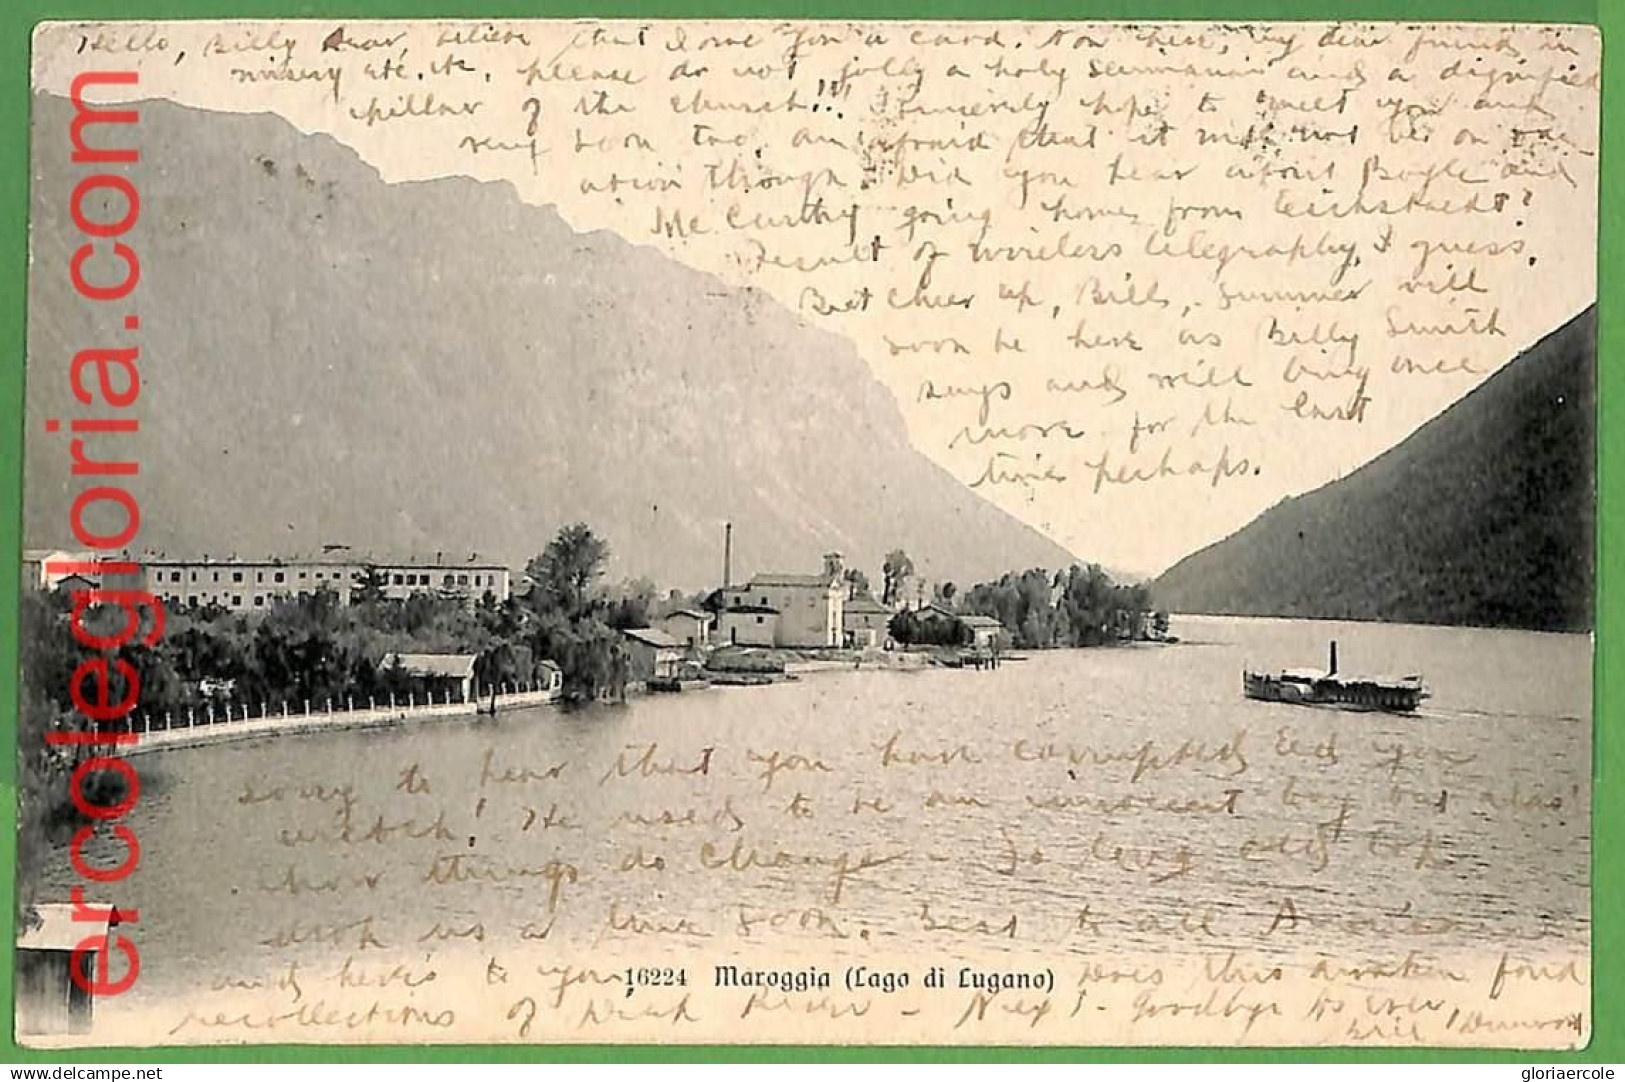 Hello, Billy dear, believe that I owe you a card. Now here, my dear friend, in
misery etc. etc. please do not jolly a holy Seminarian and a dignified
pillar of the church!!! Sincerely hope to meet you and
very soon too, am afraid that it will not be on vac-
ation though. Did you hear about Boyle and
McCarthy going home from Eichstaedt?
Result of wireless telegraphy, I guess.
But cheer up, Bill, summer will
soon be here as Billy Smith
says and will bring once
more for the last
time perhaps.
Sorry to hear that you have corrupted Ed you
wretch! He used to be an innocent boy but alas!
how things do change - So long old top
drop us a line soon. Best to all
and here's to you Does this awaken fond
recollections of River - Goodbye as ever,
Bill
16224 Maroggia (Lago di Lugano)
ercolegloria.com
delcampe.net
gloriaercole